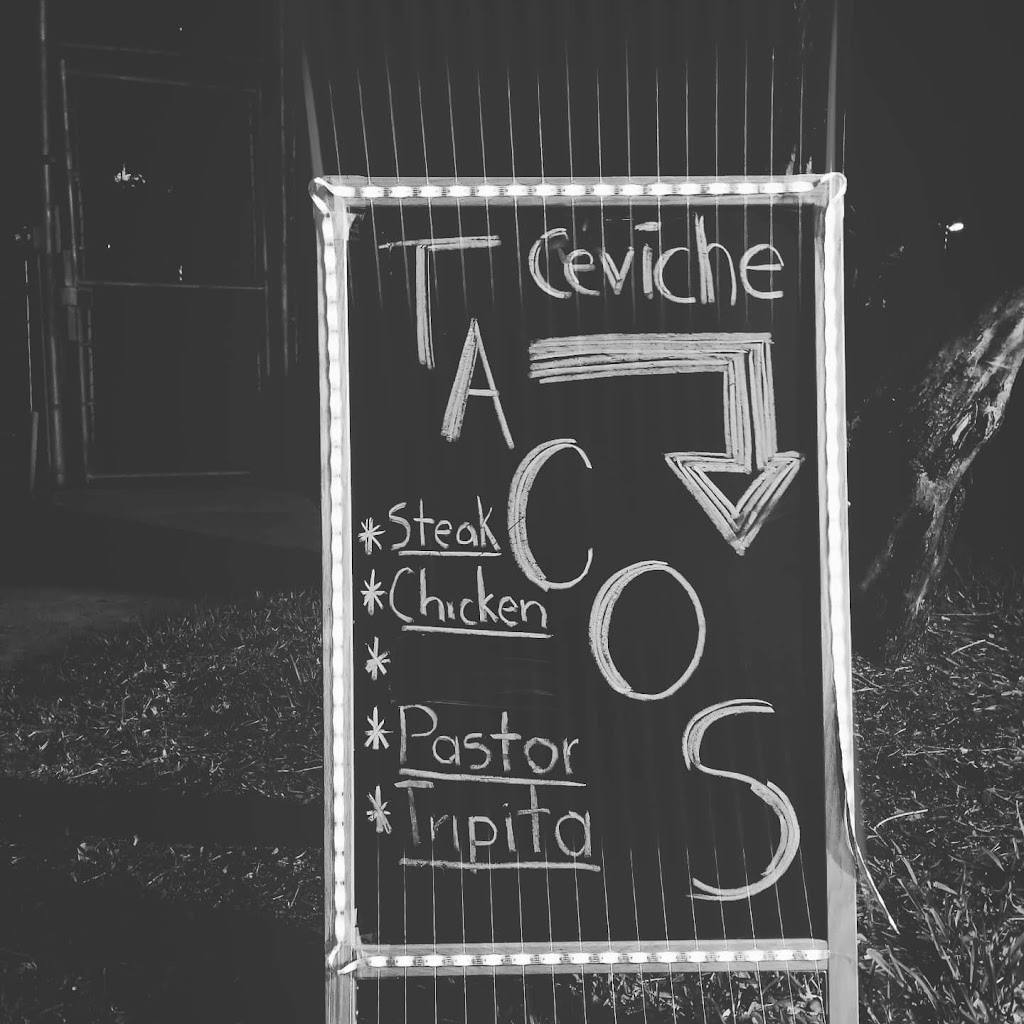 TACOS
Ceviche
* Steak
* Chicken
*
* Pastor
* Tripita